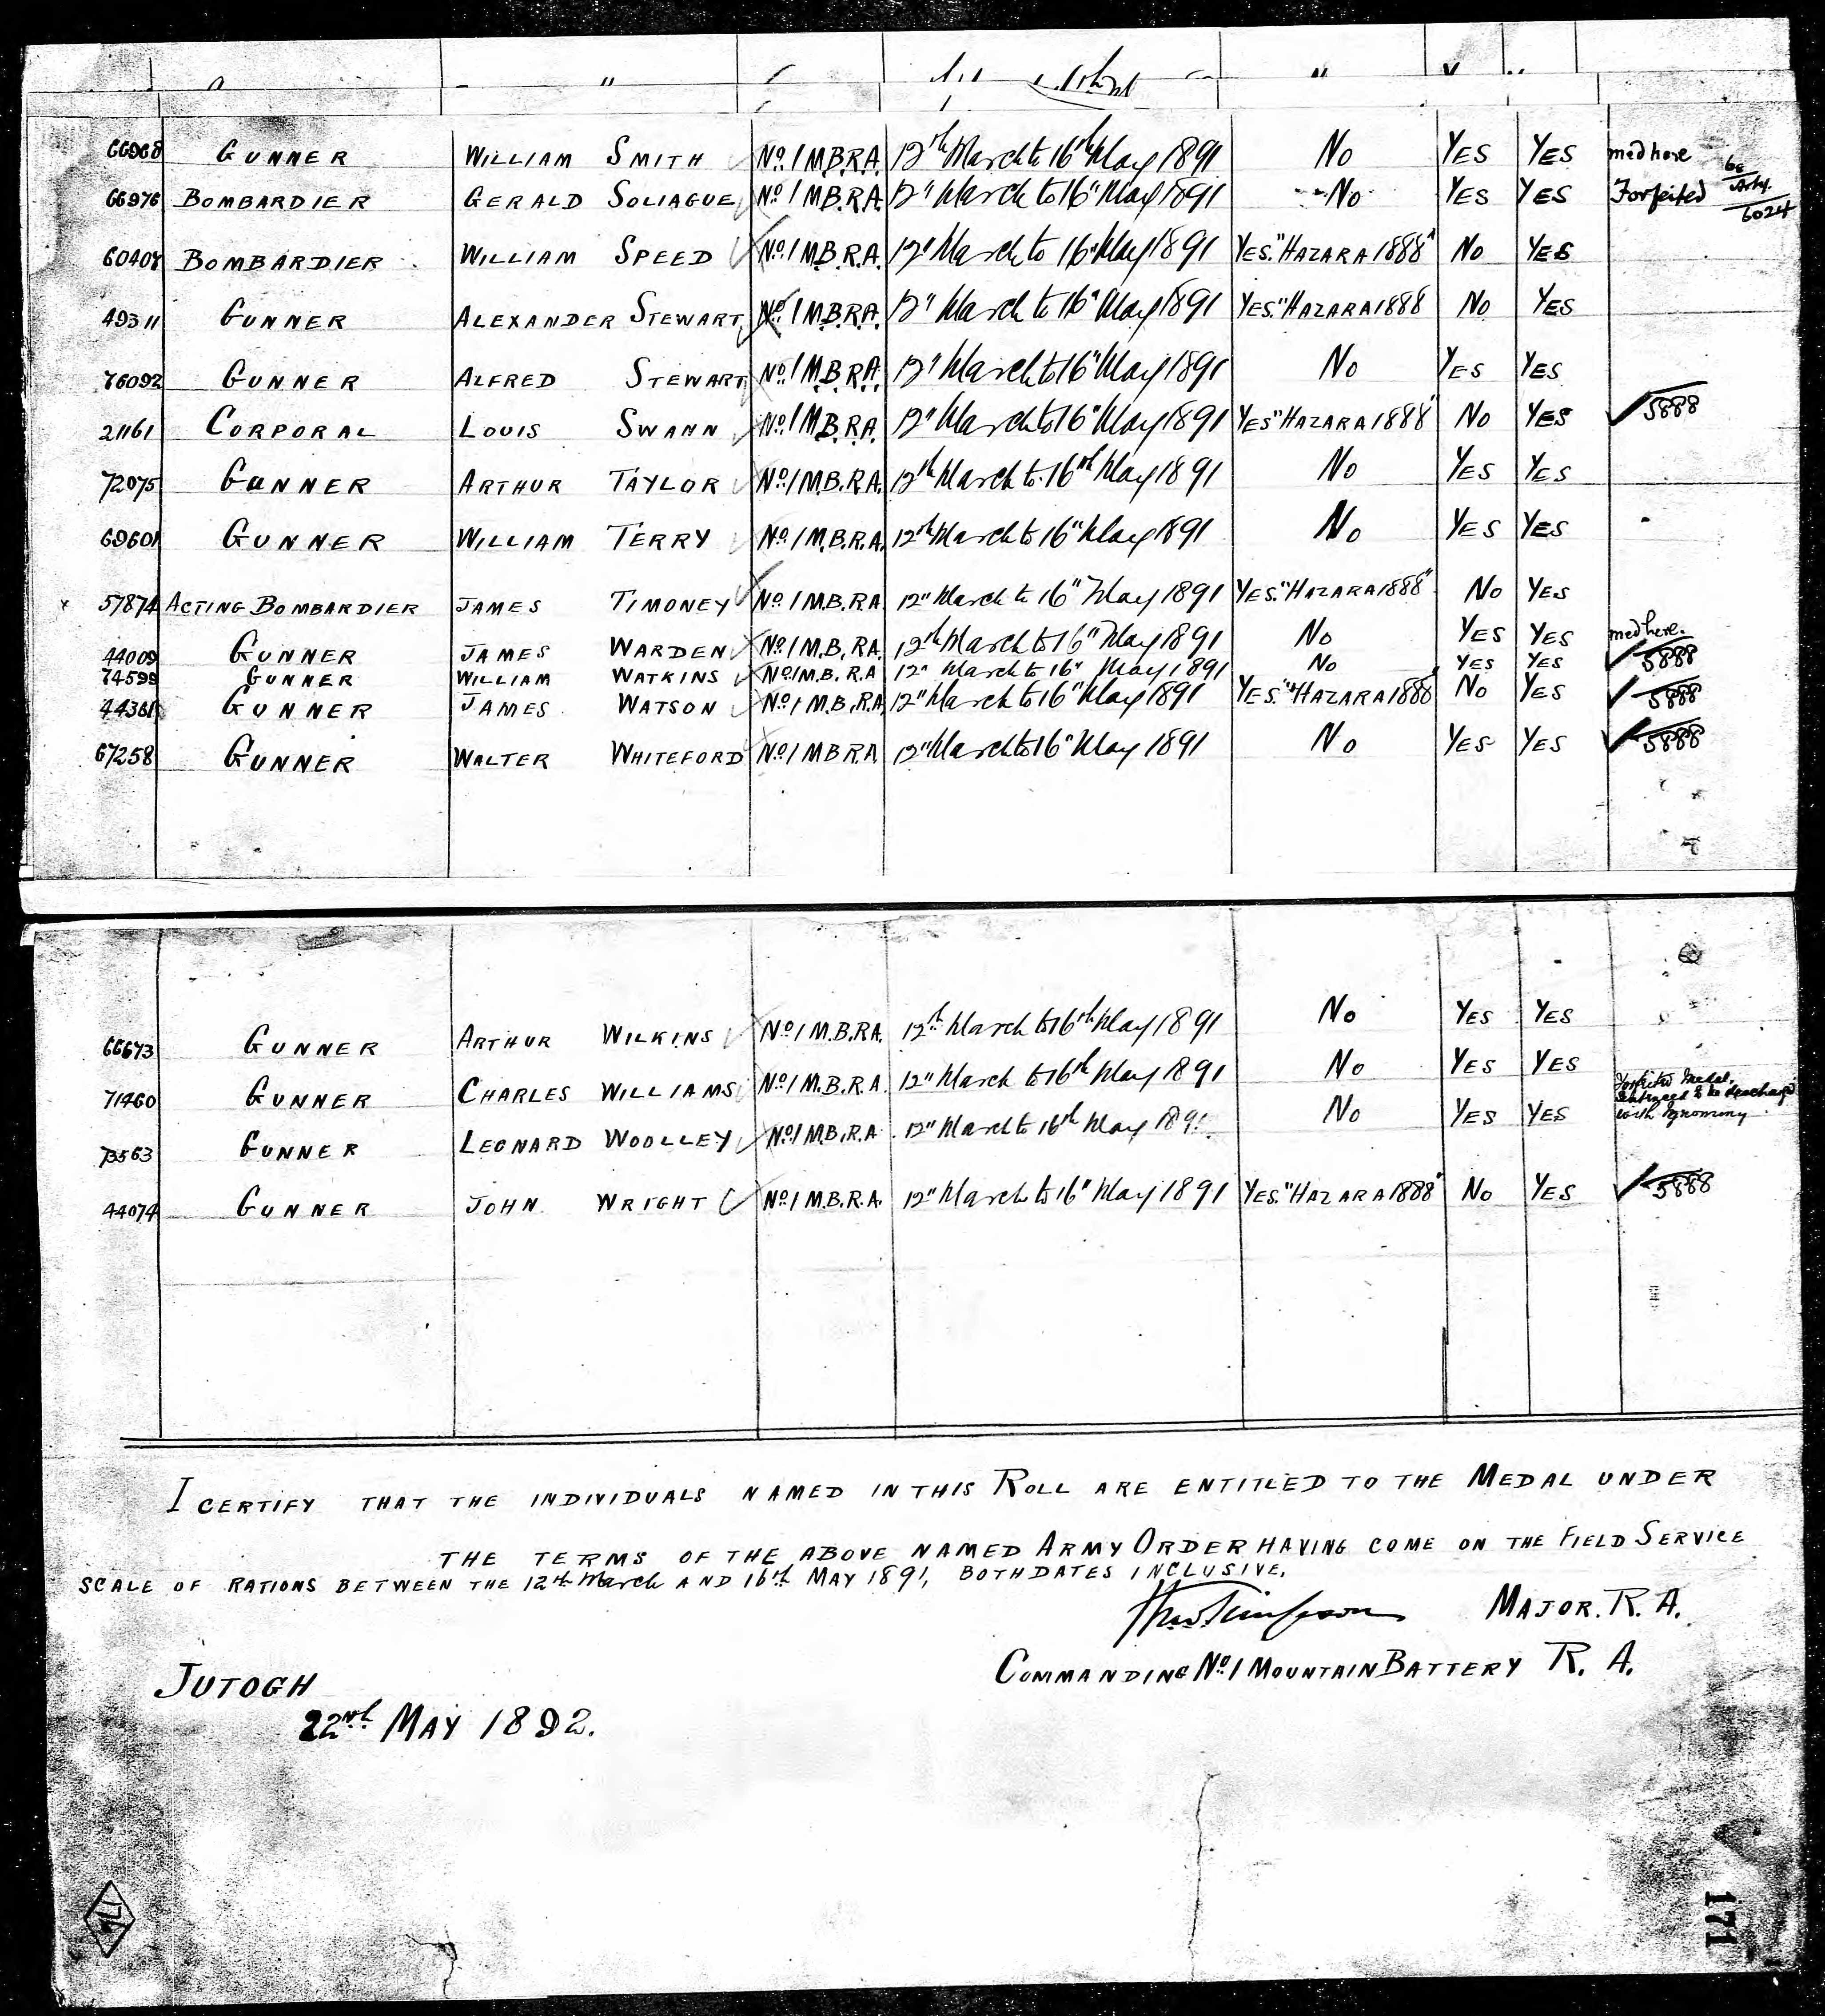 66968 GUNNER WILLIAM SMITH No 1 M.B.R.A. 12th March to 16th May 1891 No YES YES med here
66976 BOMBARDIER GERALD SOLIAGUE No 1 M.B.R.A. 12" March to 16" May 1891 No YES YES Forfeited 6024
60408 BOMBARDIER WILLIAM SPEED No 1 M.B.R.A. 12" March to 16" May 1891 YES. "HAZARA 1888" No YES
49311 GUNNER ALEXANDER STEWART No 1 M.B.R.A. 12" March to 16" May 1891 YES. "HAZARA 1888 No YES
76092 GUNNER ALFRED STEWART No 1 M.B.R.A. 12" March to 16" May 1891 No YES YES
21161 CORPORAL LOUIS SWANN No 1 M.B.R.A. 12" March to 16" May 1891 YES "HAZARA 1888" No YES ✓ 5888
72075 GUNNER ARTHUR TAYLOR No 1 M.B.R.A. 12th March to 16th May 1891 No YES YES
69601 GUNNER WILLIAM TERRY No 1 M.B.R.A. 12th March to 16" May 1891 No YES YES
x 57874 ACTING BOMBARDIER JAMES TIMONEY No 1 M.B.R.A 12" March to 16" May 1891 YES. "HAZARA 1888" No YES
44009 GUNNER JAMES WARDEN No 1 M.B.R.A. 12th March to 16" May 1891 No YES YES med here.
74599 GUNNER WILLIAM WATKINS No 1 M.B.R.A 12" March to 16" May 1891 No YES YES ✓ 5888
44361 GUNNER JAMES WATSON No 1 M.B.R.A. 12" March to 16" May 1891 YES. "HAZARA 1888 No YES ✓ 5888
67258 GUNNER WALTER WHITEFORD No 1 M B R.A. 12" March to 16" May 1891 No YES YES ✓ 5888
66673 GUNNER ARTHUR WILKINS No 1 M.B.R.A. 12th March to 16th May 1891 No YES YES
71460 GUNNER CHARLES WILLIAMS No 1 M.B.R.A. 12" March to 16th May 1891 No YES YES
73563 GUNNER LEONARD WOOLLEY No 1 M.B.R.A 12" March to 16th May 1891 No YES YES Forfeited Medal. Sentenced to be discharged with Ignominy.
44074 GUNNER JOHN WRIGHT No 1 M.B.R.A. 12" March to 16" May 1891 YES. "HAZARA 1888" No YES ✓ 5888
I CERTIFY THAT THE INDIVIDUALS NAMED IN THIS ROLL ARE ENTITLED TO THE MEDAL UNDER
THE TERMS OF THE ABOVE NAMED ARMY ORDER HAVING COME ON THE FIELD SERVICE
SCALE OF RATIONS BETWEEN THE 12th March AND 16th MAY 1891, BOTH DATES INCLUSIVE.
MAJOR. R. A.
COMMANDING No 1 MOUNTAIN BATTERY R. A.
JUTOGH
22nd MAY 1892.
171